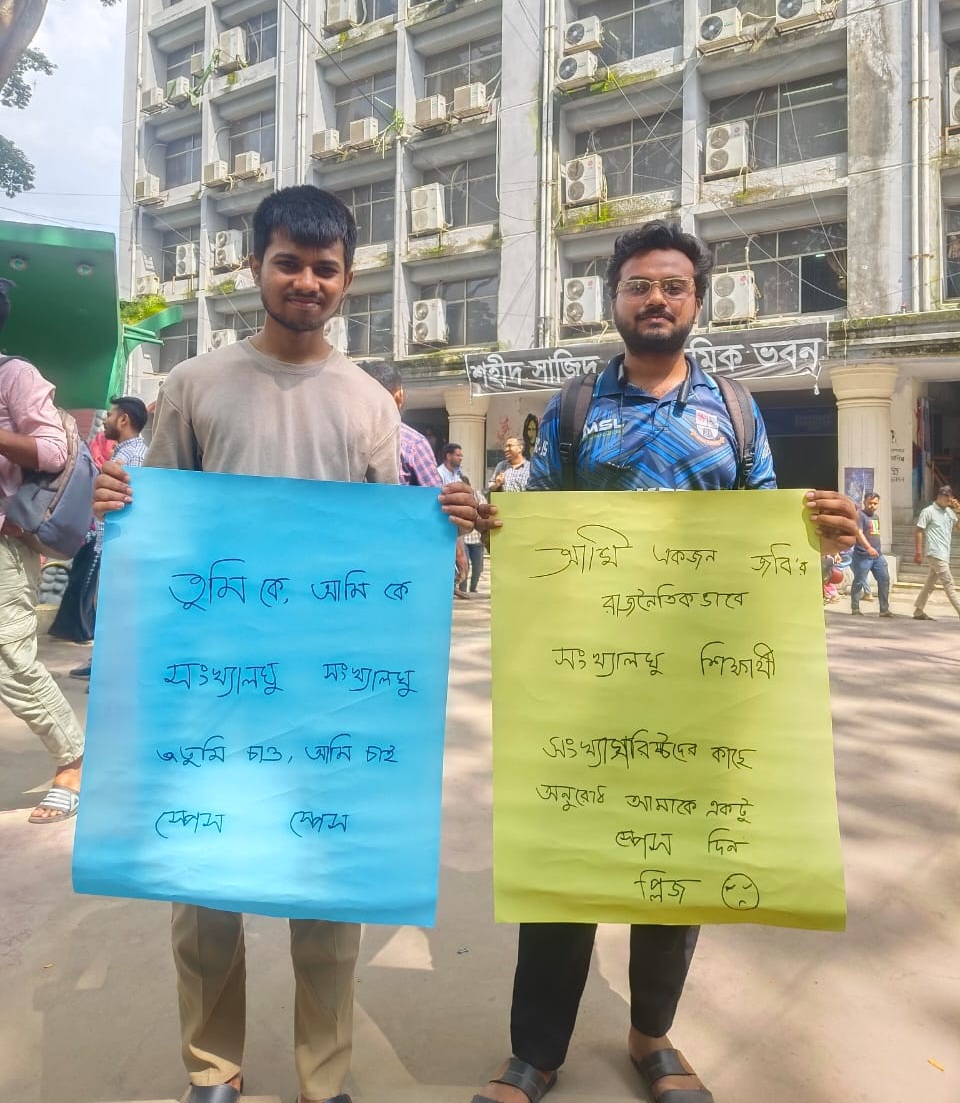 শহীদ সাজিদ
মিক ভবন
MSL
তুমি কে, আমি কে
সংখ্যালঘু সংখ্যালঘু
তুমি চাও, আমি চাই
স্পেস স্পেস
আমি একজন জবি'র
রাজনৈতিক ভাবে
সংখ্যালঘু শিক্ষার্থী
সংখ্যাঘরিষ্টদের কাছে
অনুরোধ আমাকে একটু
স্পেস দিন
প্লিজ